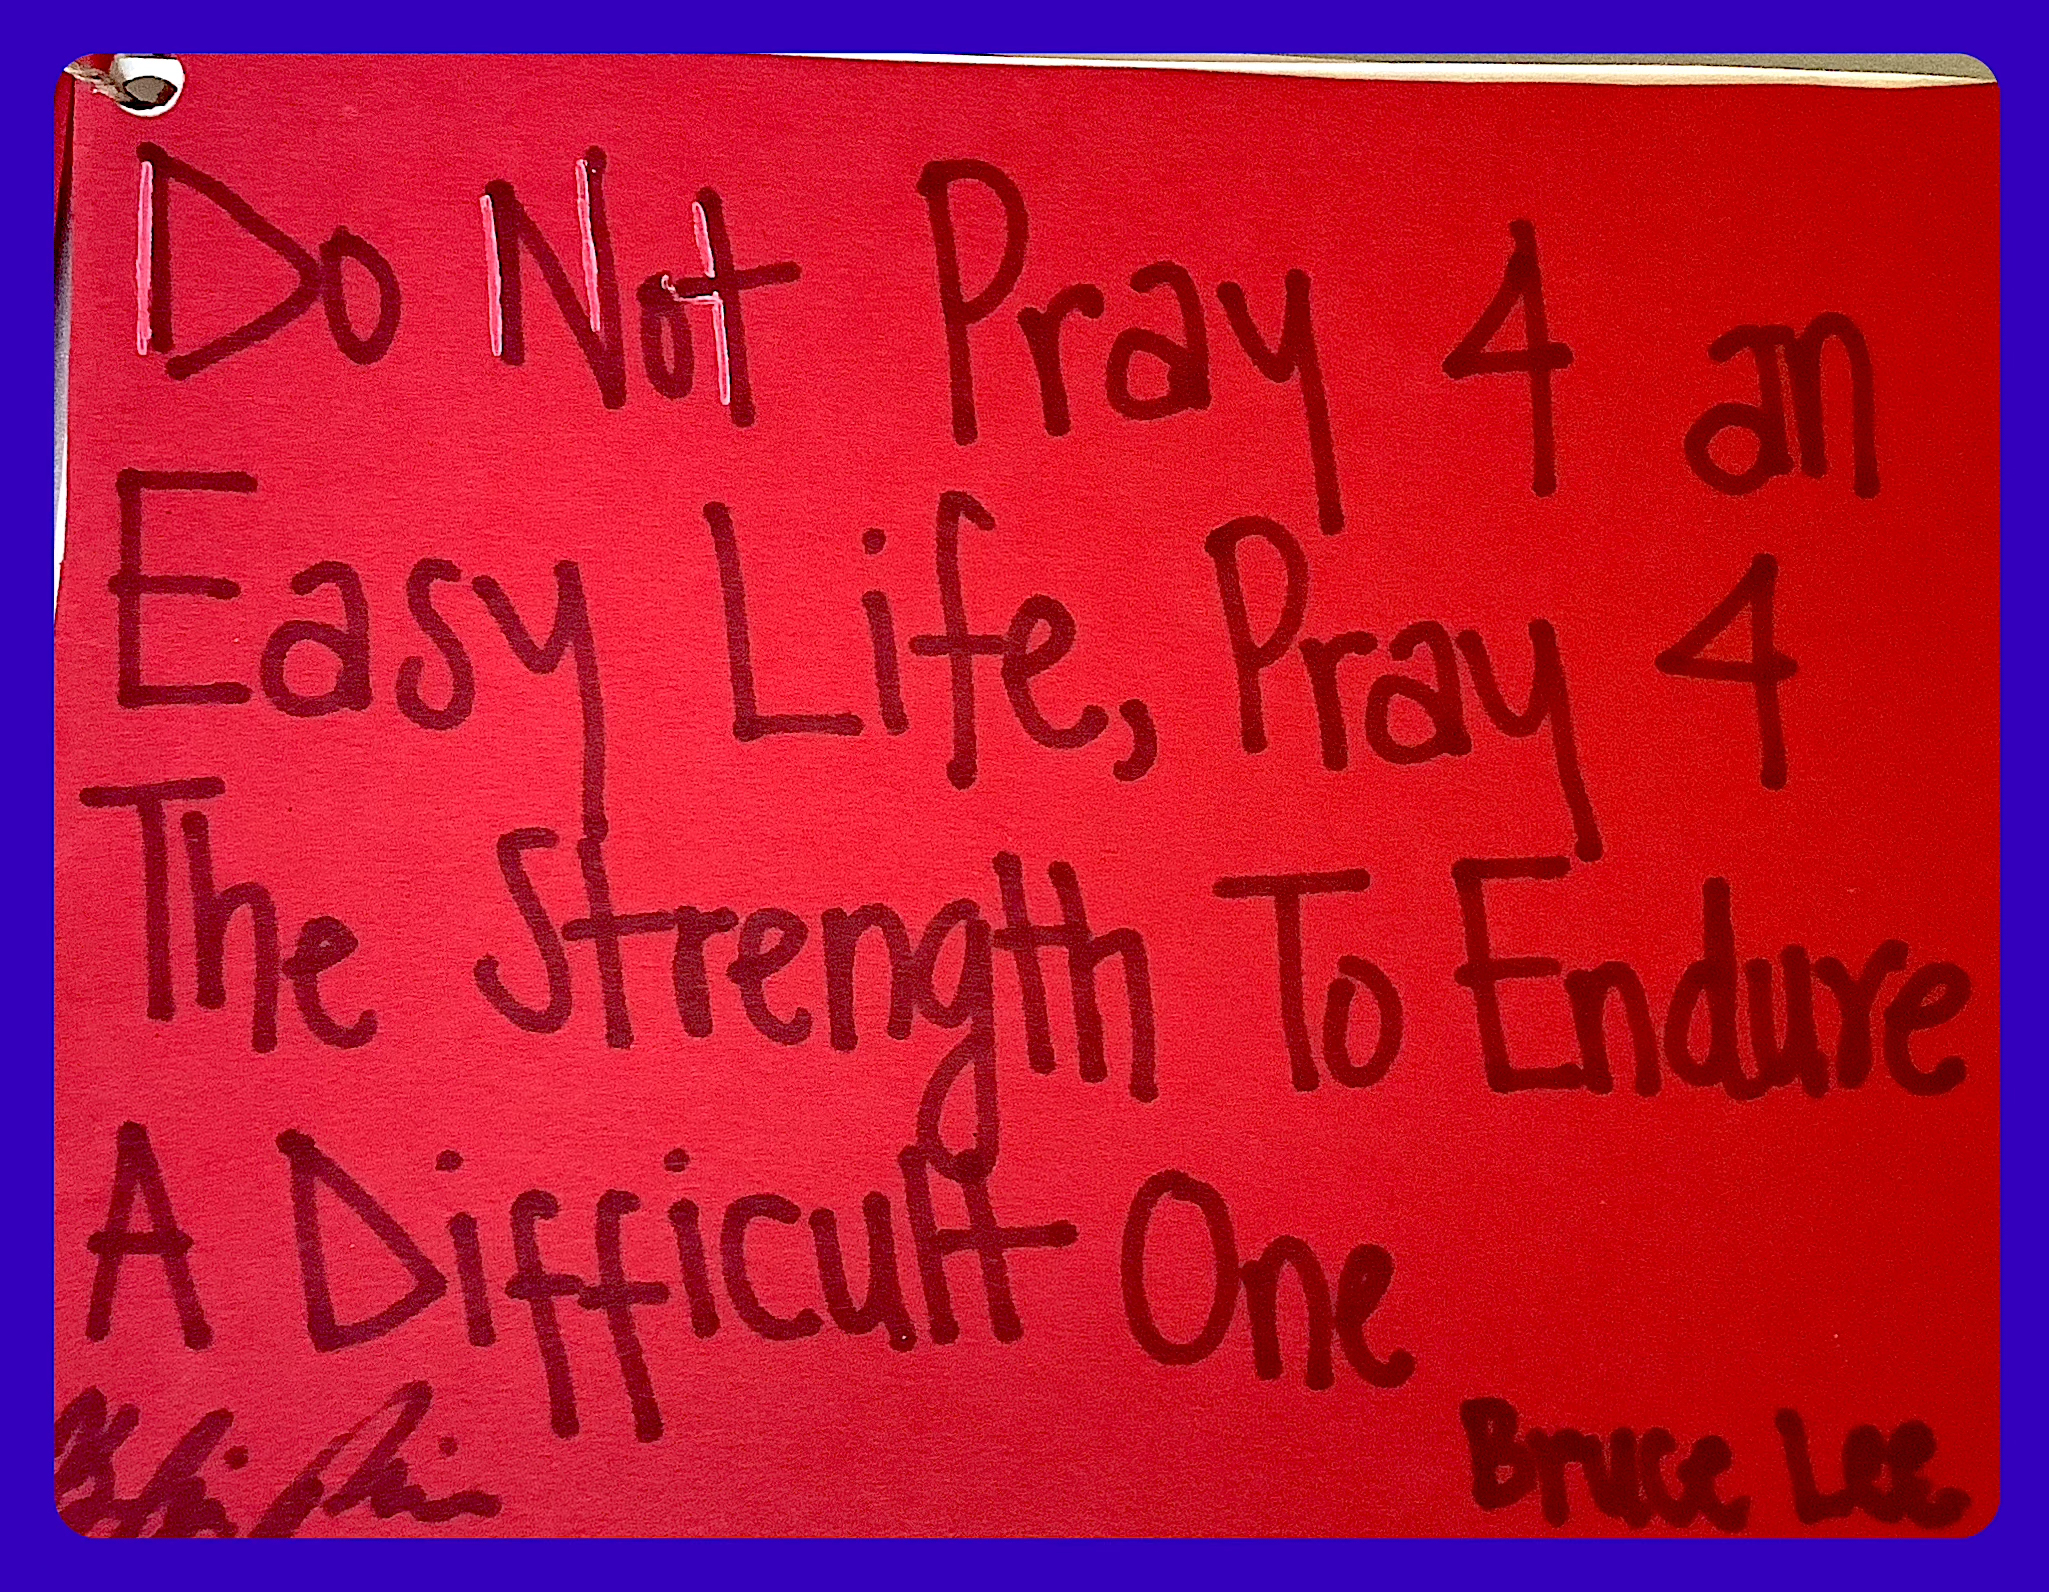 Do Not Pray 4 an
Easy Life, Pray 4
The Strength To Endure
A Difficult One
Bruce Lee